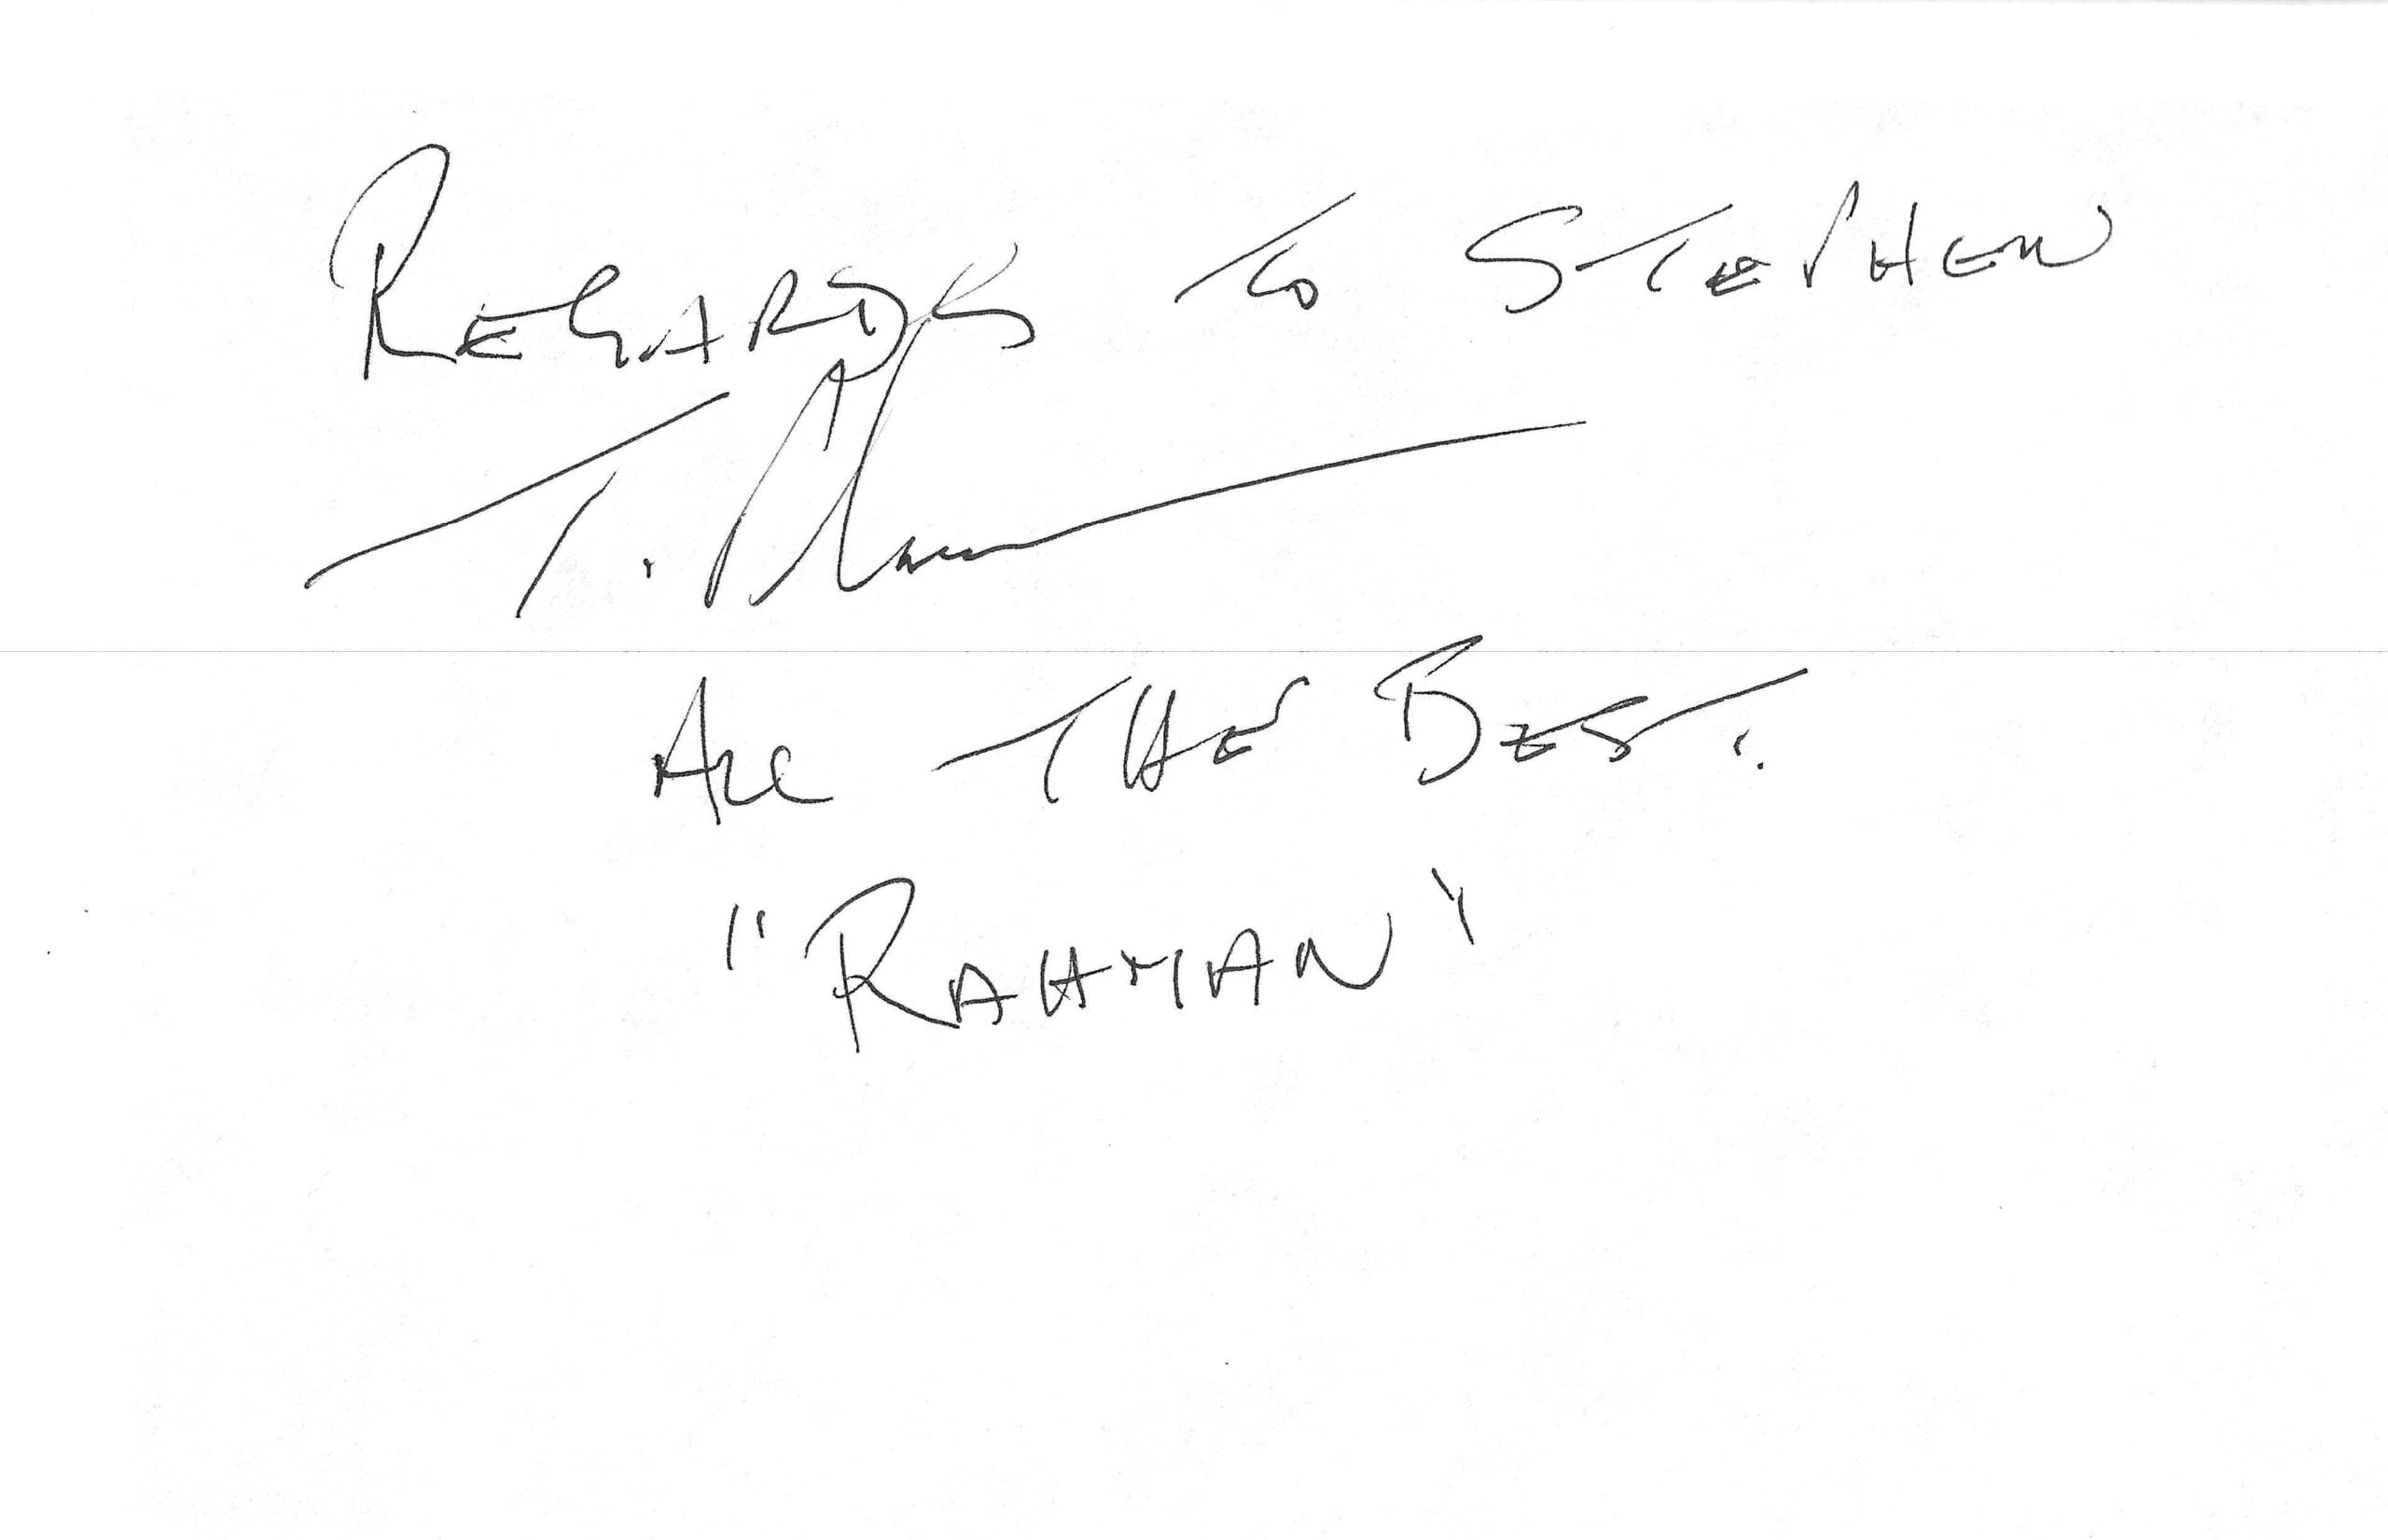 REGARDS TO STEPHEN
T.
ALL THE BEST.
"RAHMAN"